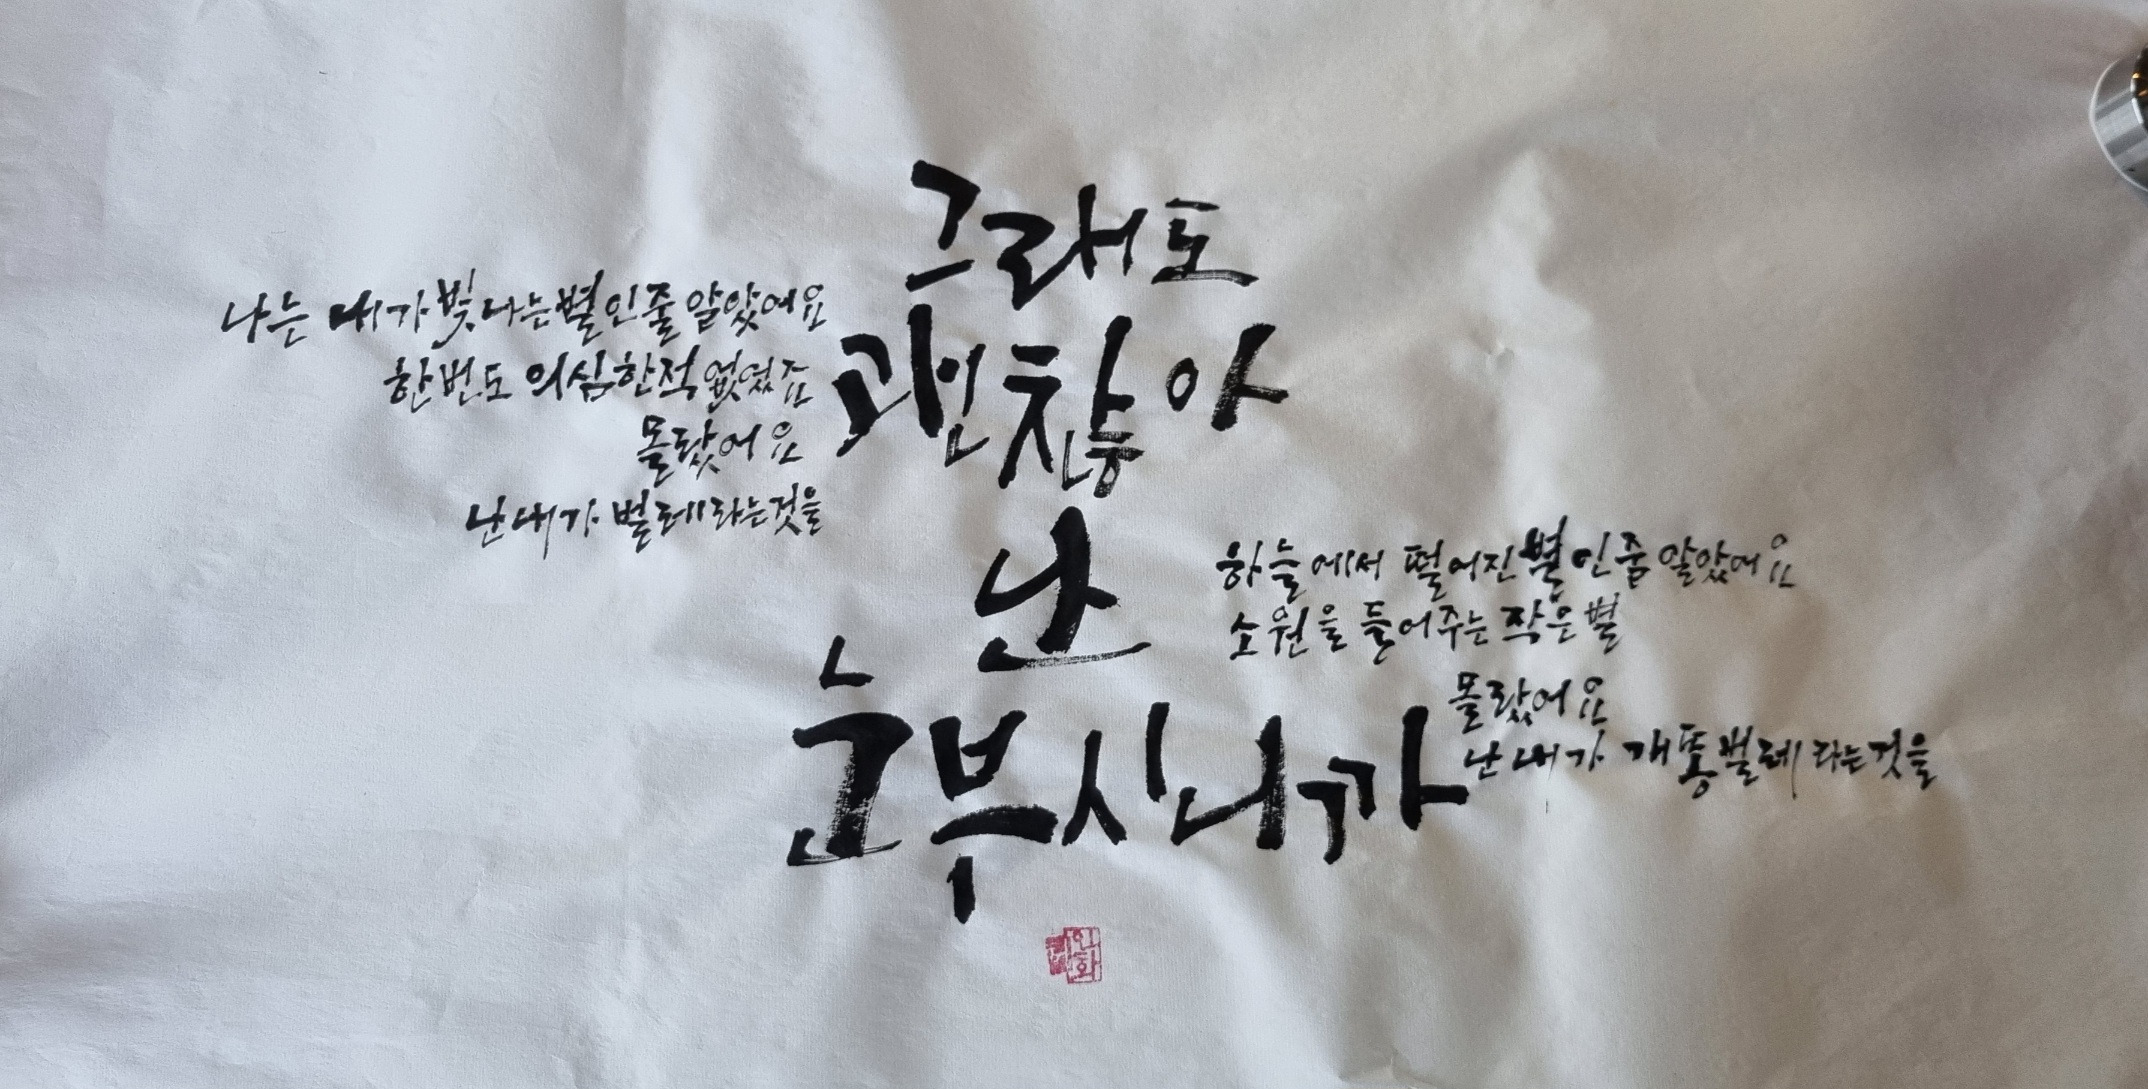 그래도
괜찮아
난
눈부시니까
나는 내가 빛나는 별인줄 알았어요
한번도 의심한적 없었죠
몰랐어요
난 내가 벌레라는것을
하늘에서 떨어진 별인줄 알았어요
소원을 들어주는 작은별
몰랐어요
난 내가 개똥벌레라는것을
인화